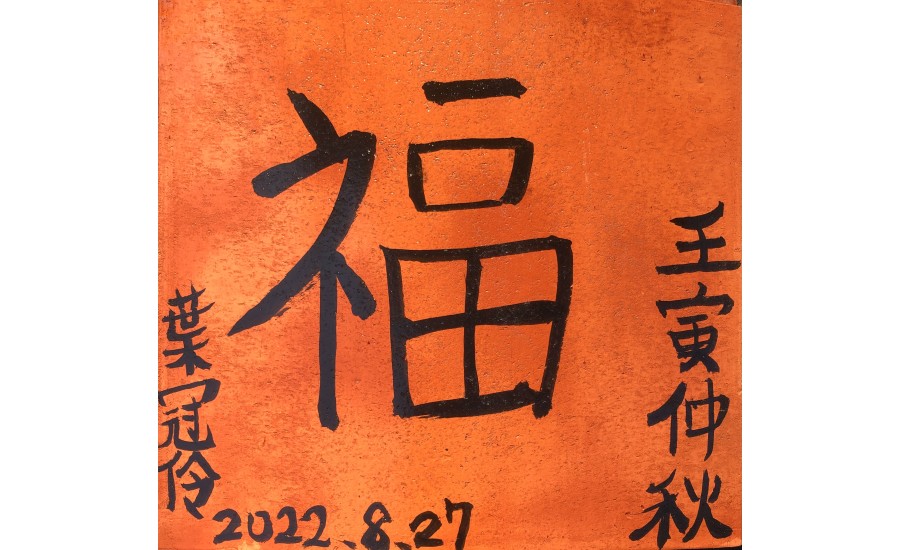 福
壬寅仲秋
葉冠伶
2022.8.27